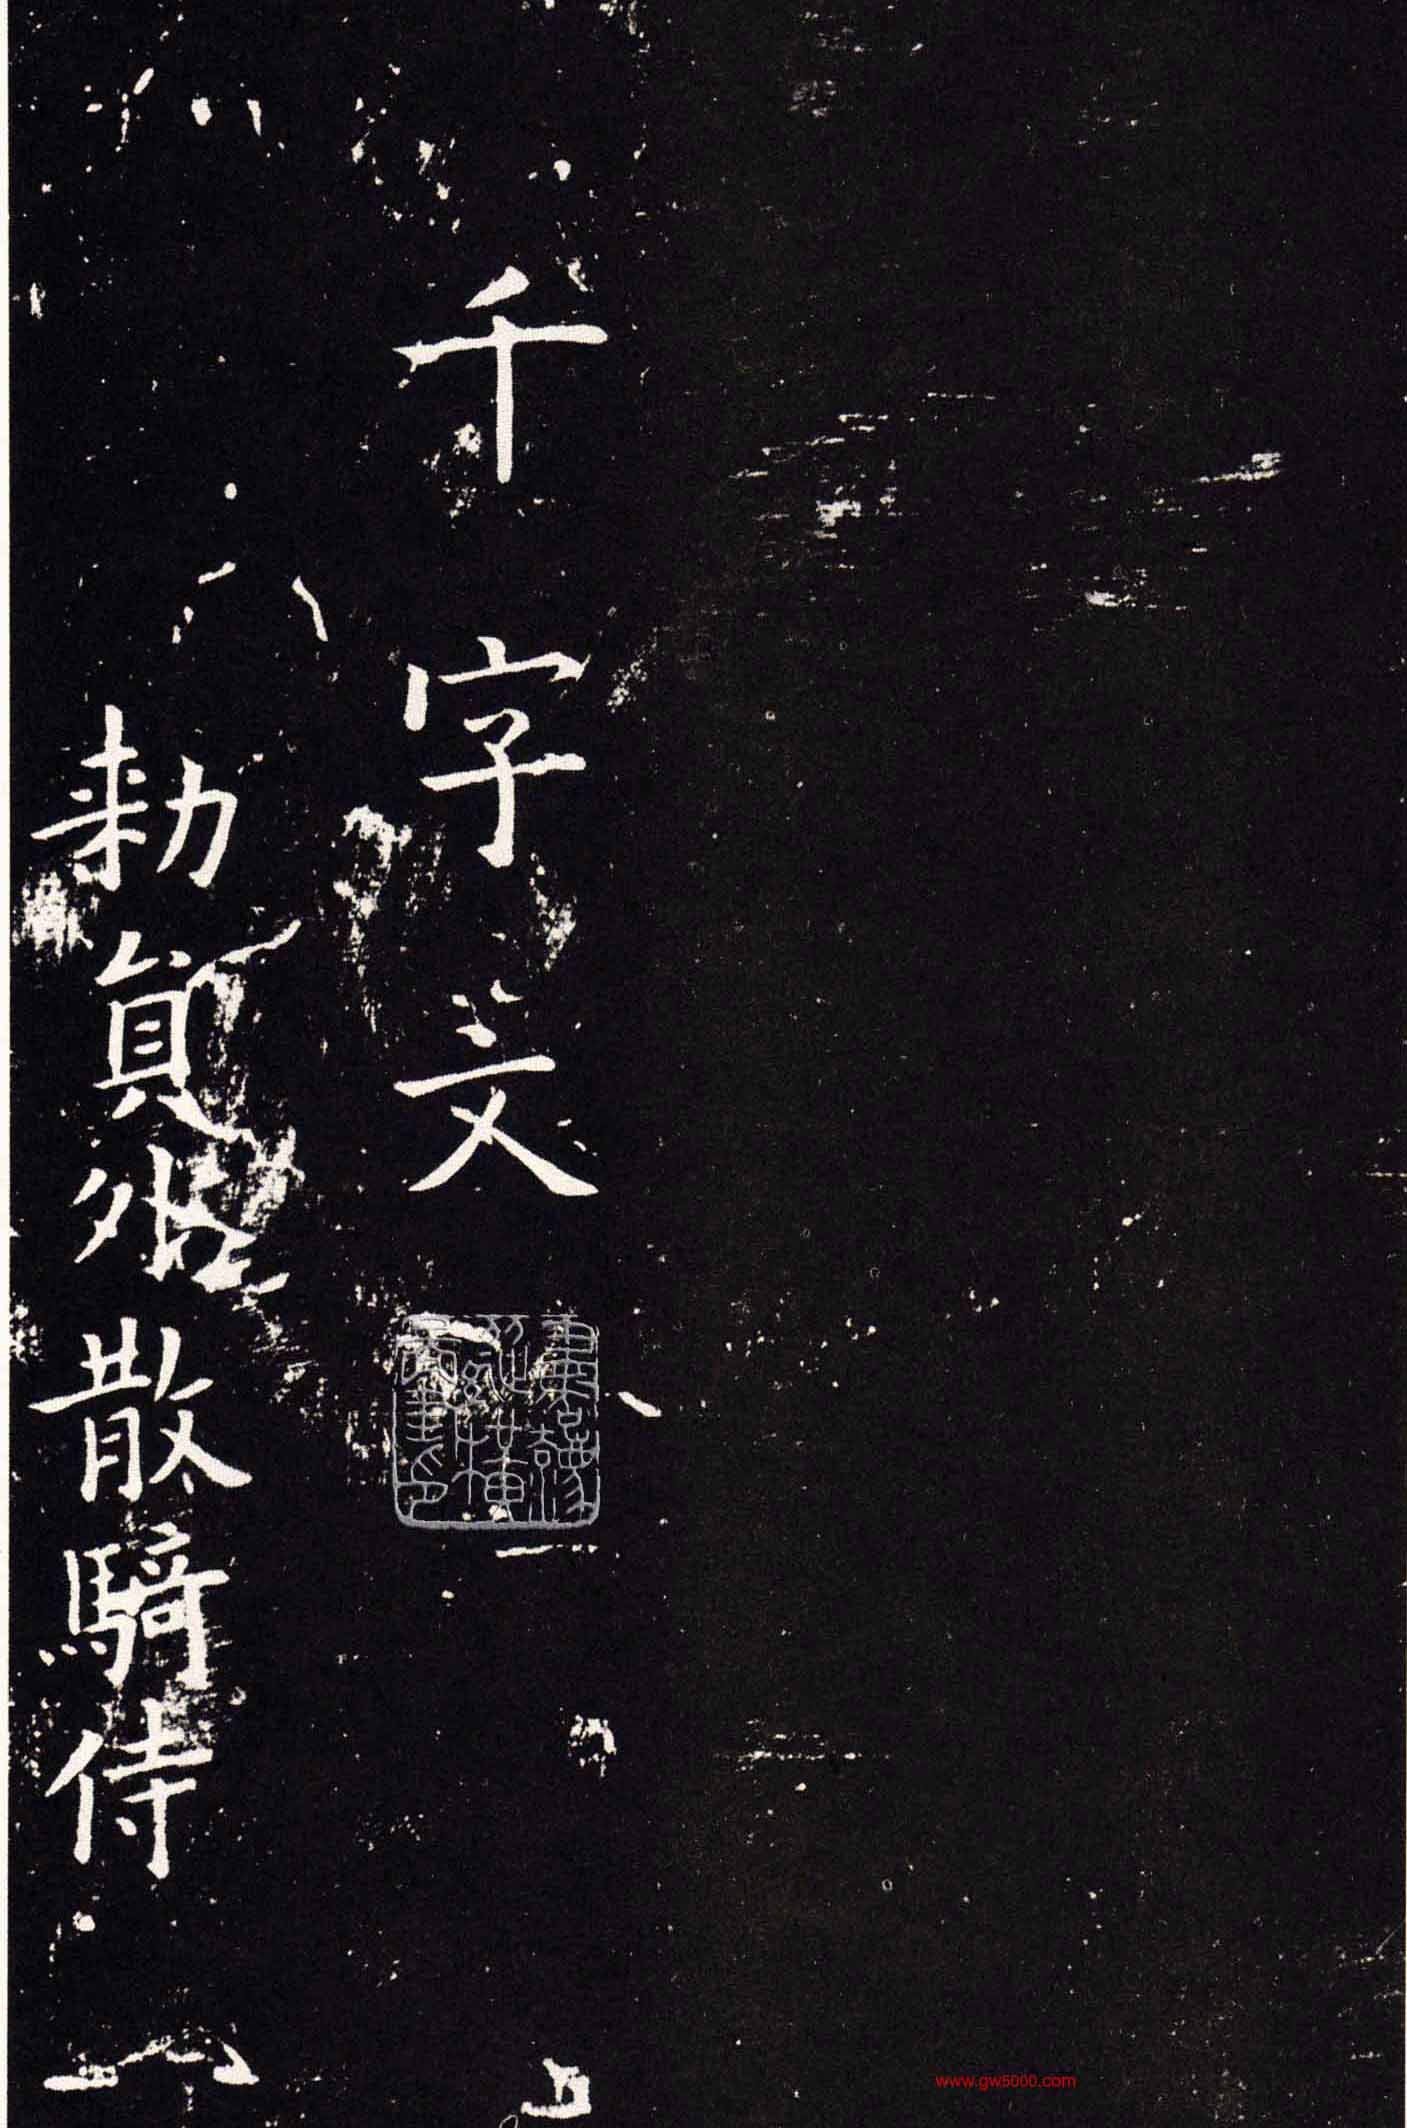 千字文
勑貟外散騎侍
www.gw5000.com